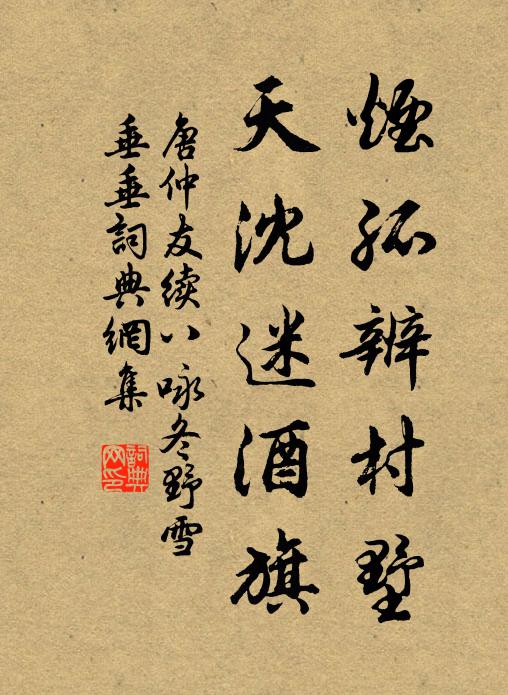 煙孤辨村墅
天沈迷酒旗
唐仲友續八咏冬野雪
垂垂詞典網集
詞典
网印